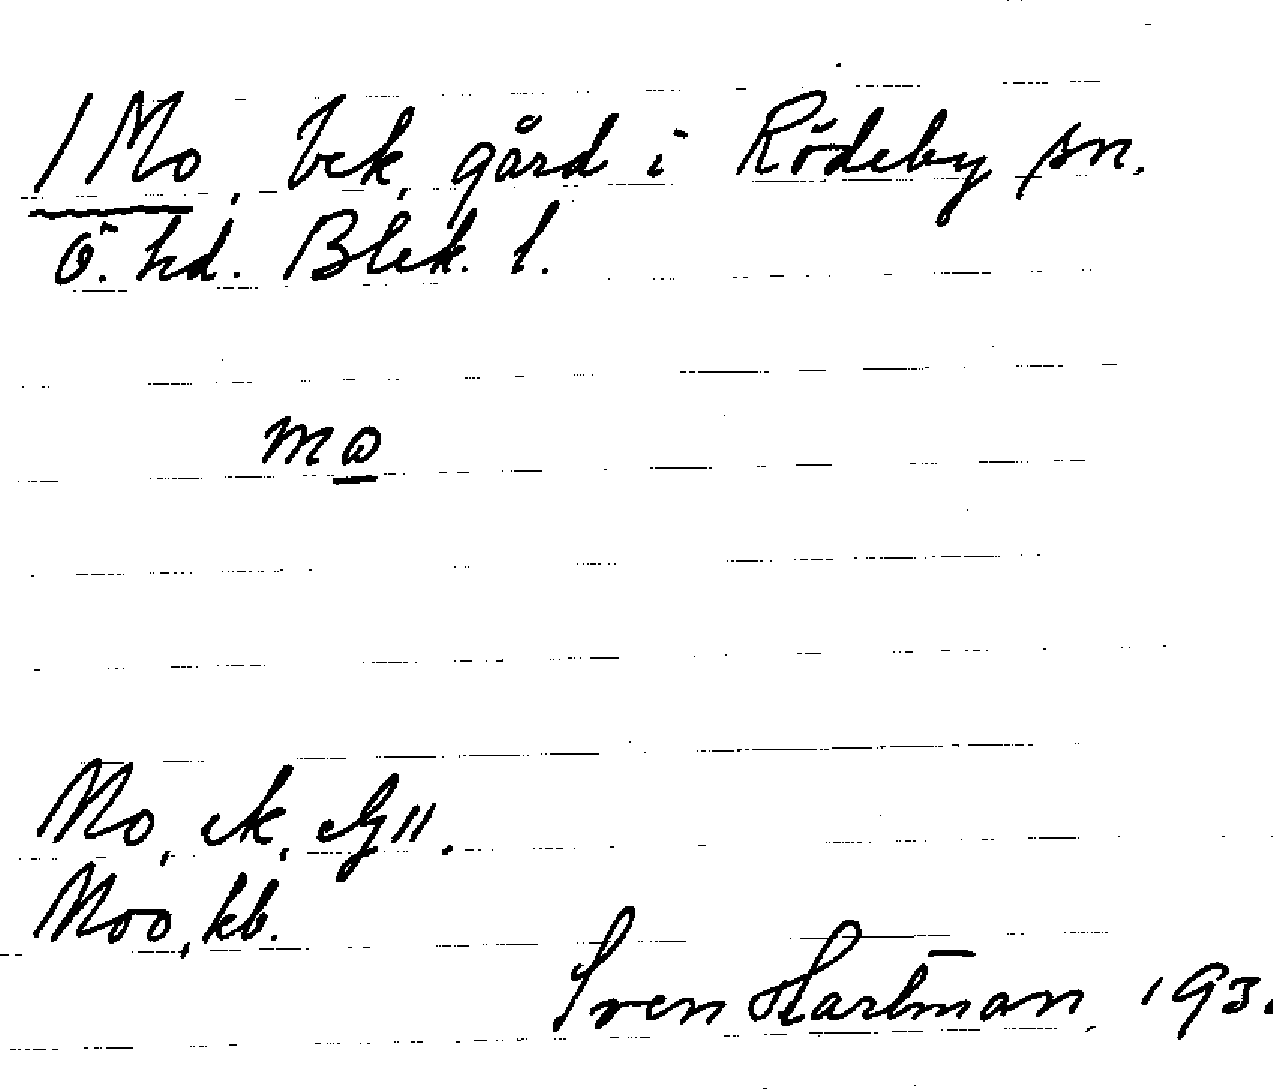 1 Mo, bek. gård i Rödeby sn.
Ö. hd. Blek. l.
mω
Mo, ek,
Moo, kb.
Sven Hartman, 193